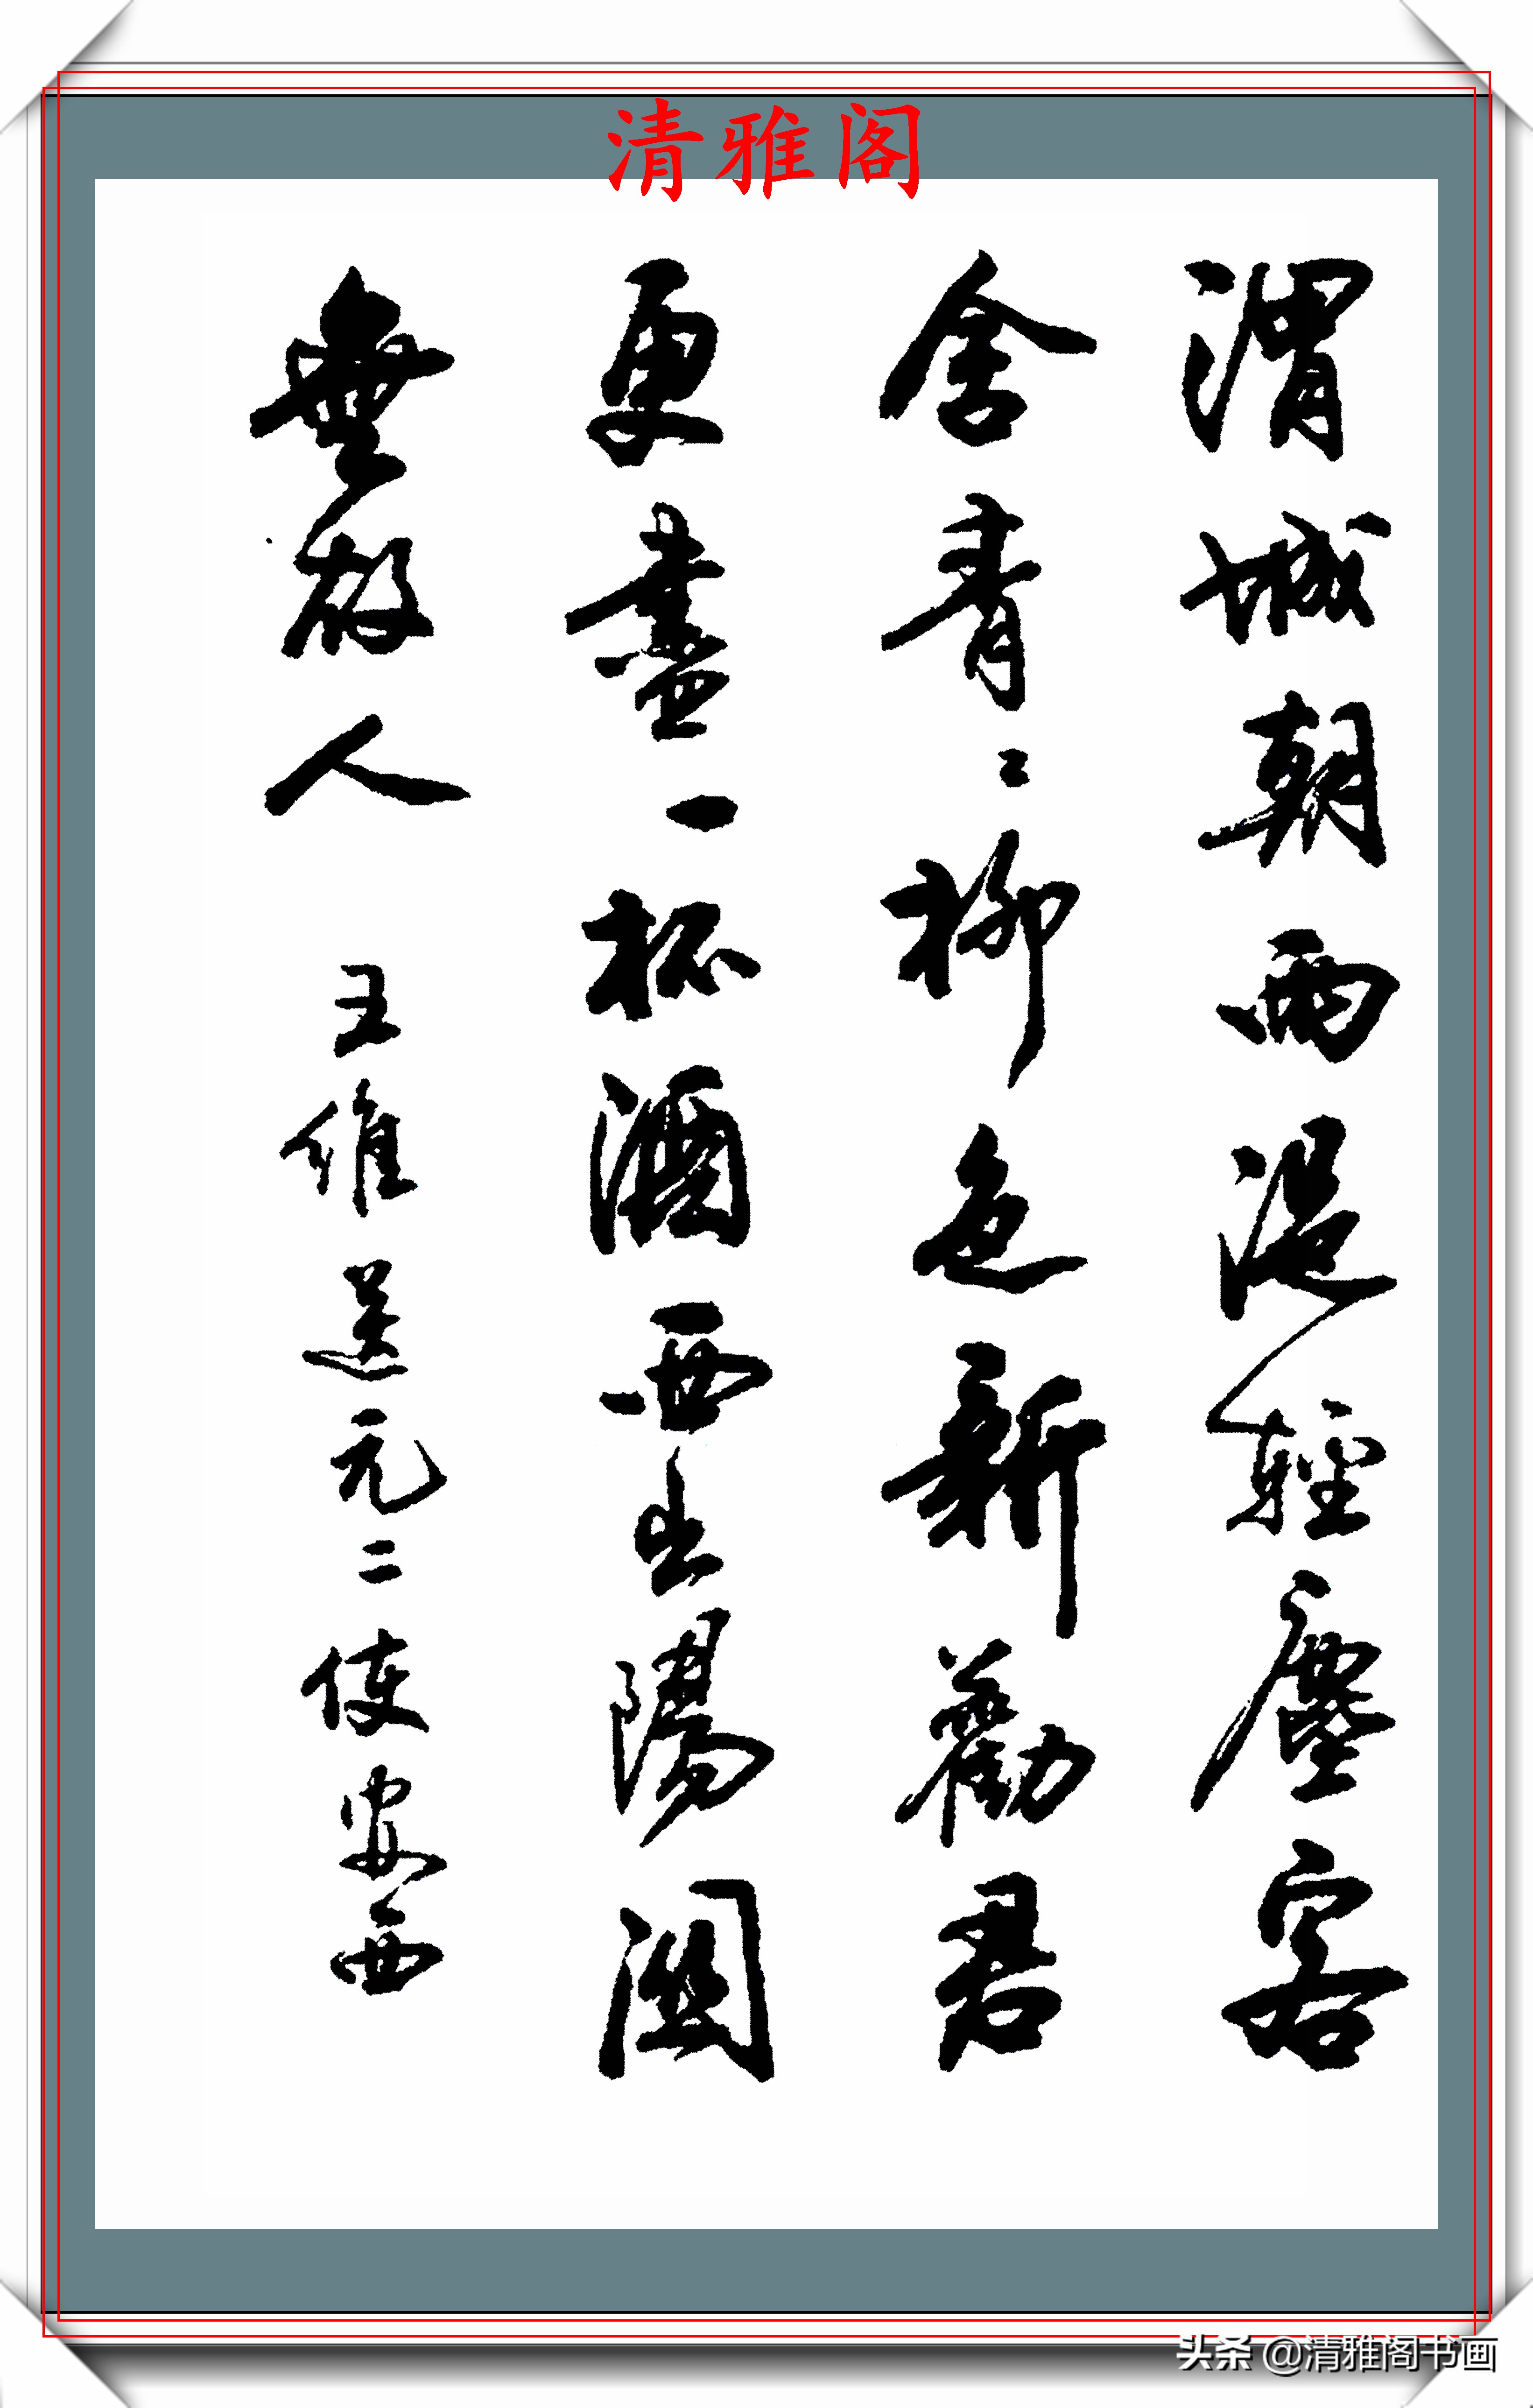 清雅阁
渭城朝雨浥輕塵客
舍青〻柳色新勸君
更盡一杯酒西出陽關
無故人 王維送元二使安西
头条 @清雅阁书画